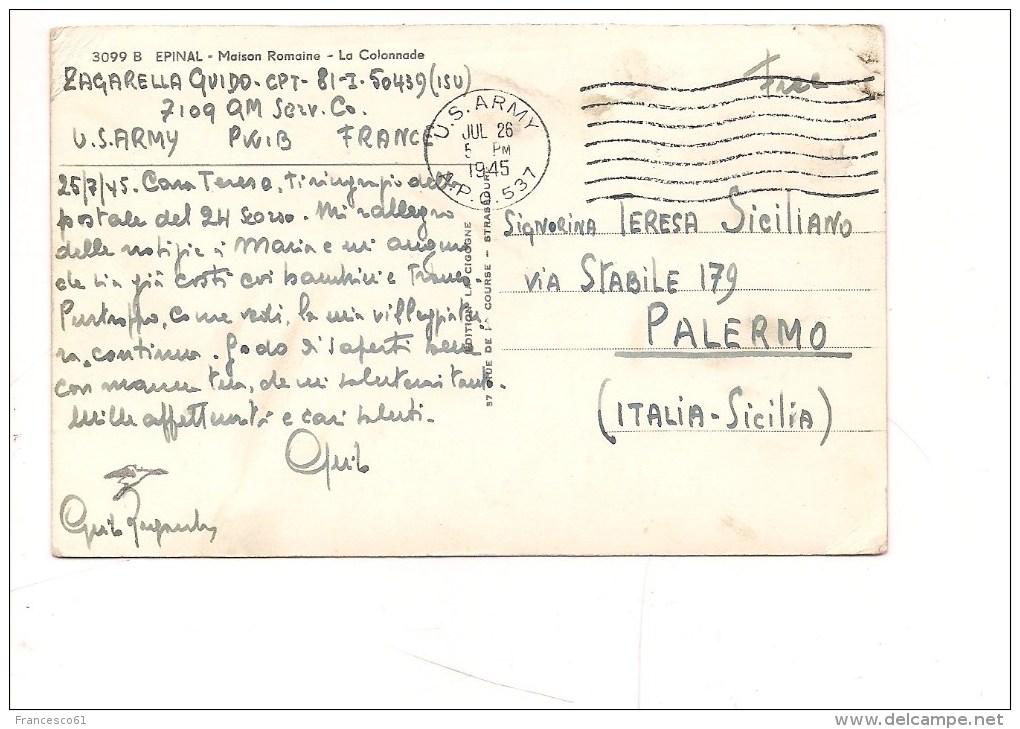 3099 B EPINAL - Maison Romaine - La Colonnade
ZAGARELLA GUIDO - CPT - 81-I-50439 (ISU)
7109 QM Serv. Co.
U.S.ARMY PWIB FRANCE
Free
U.S. ARMY
JUL 26
5 PM
1945
A.P.O. 537
25/7/45. Cara Teresa, ti ringrazio della
postale del 24 scorso. Mi rallegro
delle notizie di Maria e mi auguro
che sia già costì coi bambini e Franco.
Purtroppo, come vedi, la mia villeggiatu
ra, continua. Godo di saperti bene
con mamma tua, che mi saluterai tanto.
Mille affettuosità e cari saluti.
Guido
Guido Zagarella
EDITION LA CIGOGNE
37 RUE DE LA COURSE - STRASBOURG
SIGNORINA TERESA SICILIANO
VIA STABILE 179
PALERMO
(ITALIA-SICILIA)
Francesco61
www.delcampe.net